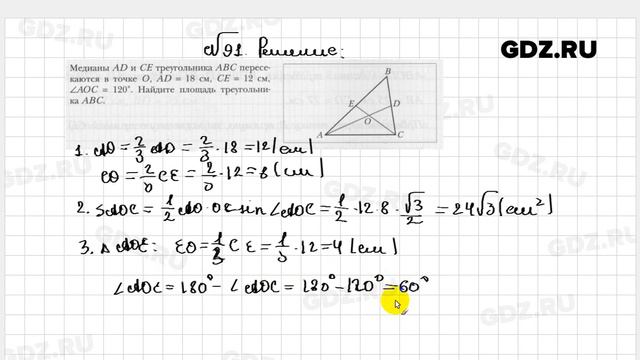 №91. Решение:
GDZ.RU
Медианы AD и CE треугольника ABC пересе-
каются в точке O, AD = 18 см, CE = 12 см,
∠AOC = 120°. Найдите площадь треугольни-
ка ABC.
B
E
D
O
A
C
1. AO = 2/3 AD = 2/3 · 18 = 12 (см)
CO = 2/3 CE = 2/3 · 12 = 8 (см)
2. SAOC = 1/2 AO · OC sin ∠AOC = 1/2 · 12 · 8 · √3/2 = 24√3 (см²)
3. △ AOE: EO = 1/3 CE = 1/3 · 12 = 4 (см)
∠AOE = 180° - ∠AOC = 180° - 120° = 60°